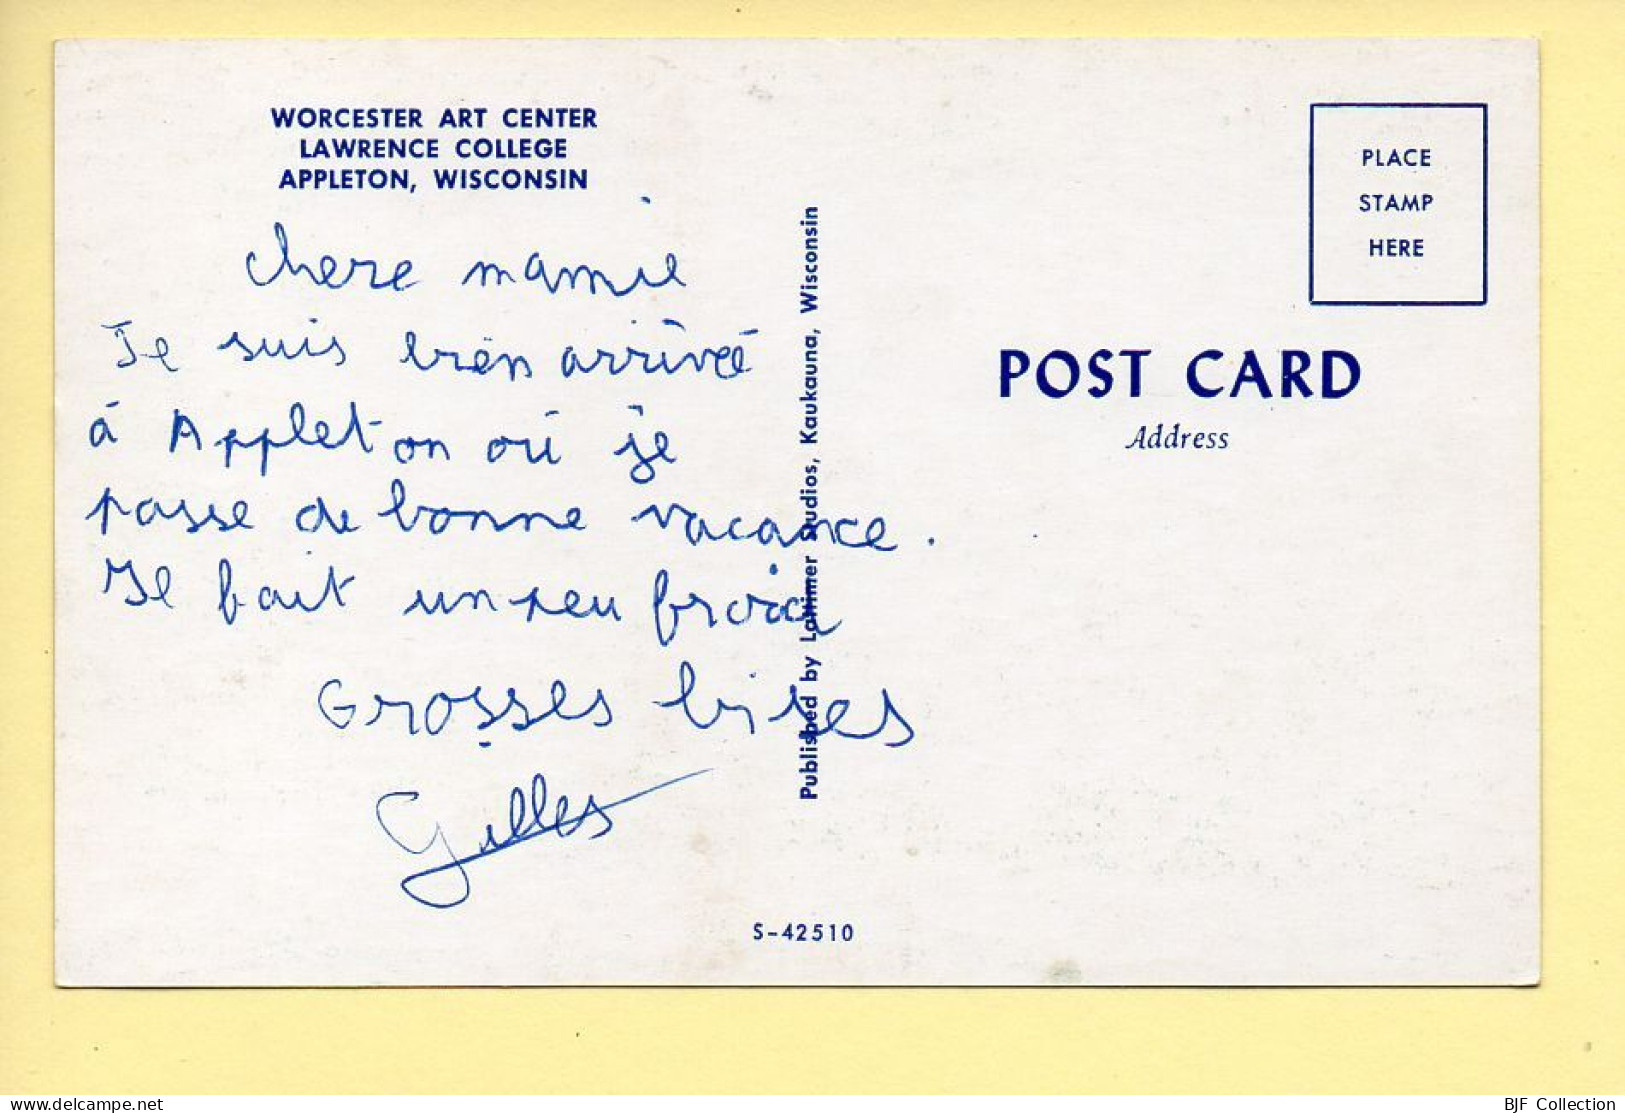 WORCESTER ART CENTER
LAWRENCE COLLEGE
APPLETON, WISCONSIN
chere mamie
Je suis bien arrivé
à Appleton où je
passe de bonne vacance.
Il fait un peu froid
Grosses bises
Gilles
S-42510
Published by Latimer Studios, Kaukauna, Wisconsin
PLACE
STAMP
HERE
POST CARD
Address
delcampe.net
BJF Collection